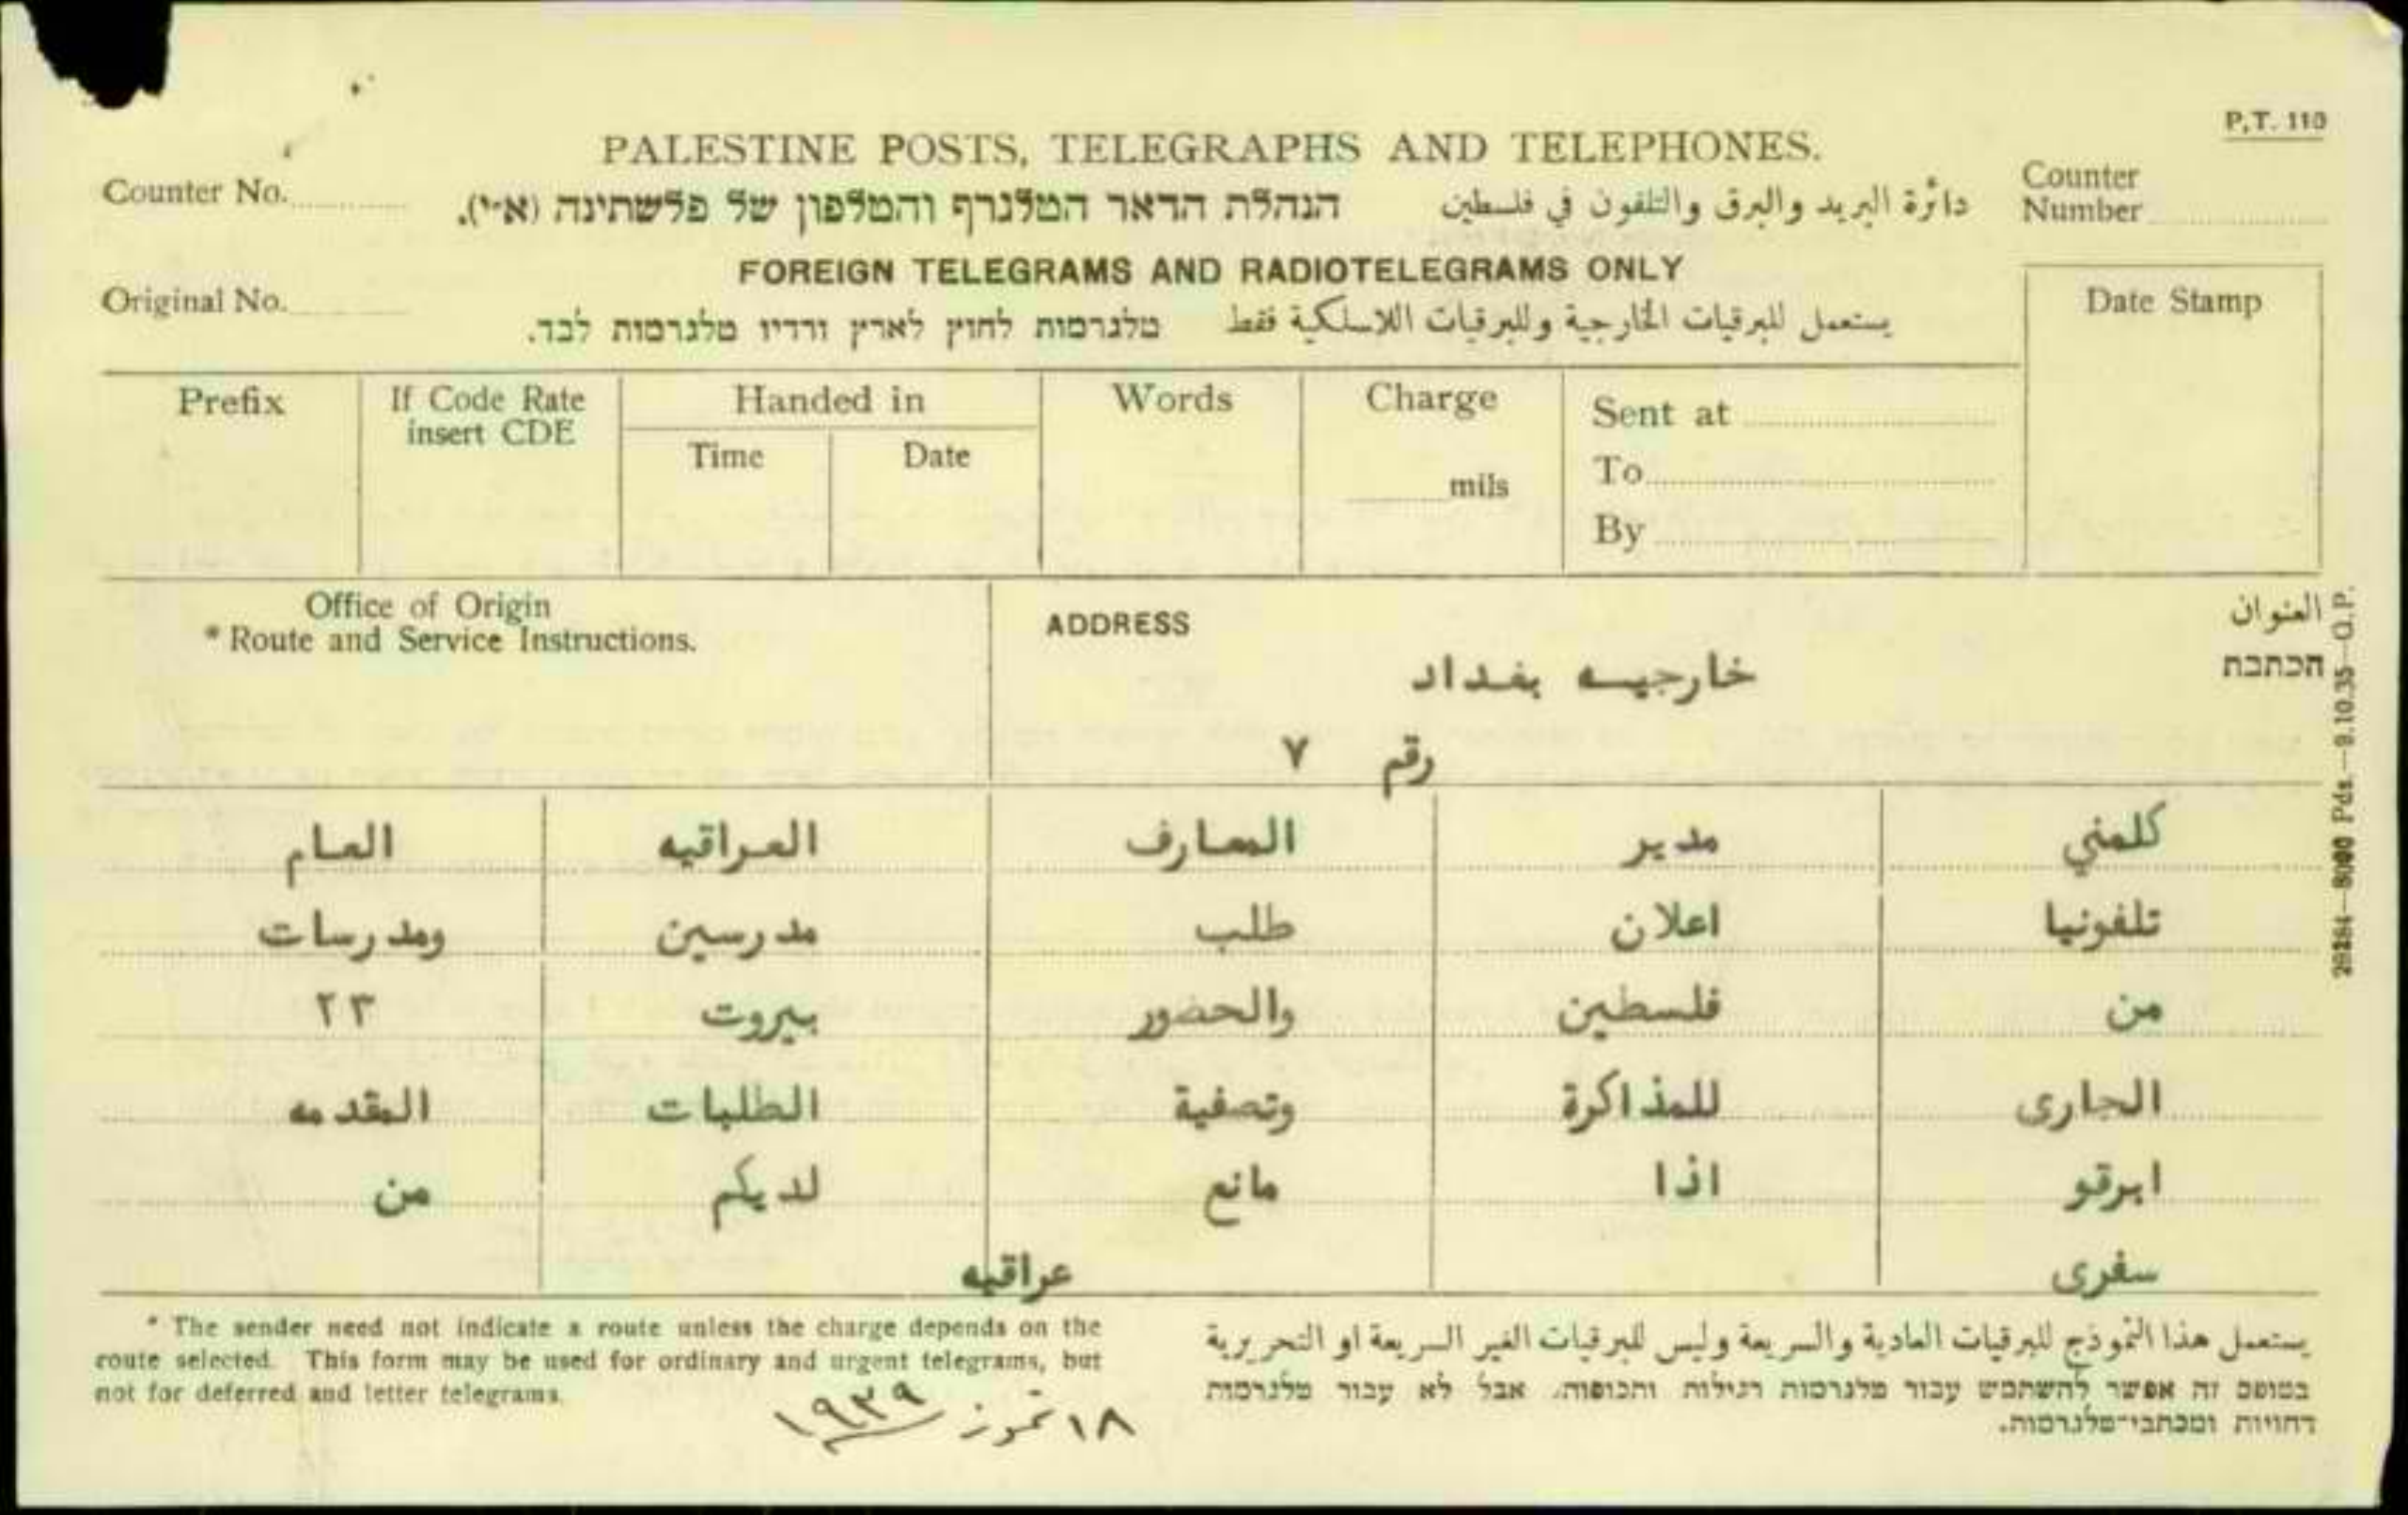 P.T. 110
PALESTINE POSTS, TELEGRAPHS AND TELEPHONES.
Counter No.
הנהלת הדאר הטלגרף והטלפון של פלשתינה (א״י).
دائرة البريد والبرق والتلفون في فلسطين
Counter Number
FOREIGN TELEGRAMS AND RADIOTELEGRAMS ONLY
Original No.
טלגרמות לחוץ לארץ ורדיו טלגרמות לבד.
يستعمل للبرقيات الخارجية وللبرقيات اللاسلكية فقط
Date Stamp
Prefix
If Code Rate
insert CDE
Handed in
Time Date
Words
Charge
mils
Sent at
To
By
Office of Origin
* Route and Service Instructions.
ADDRESS
العنوان
הכתבת
خارجيه بغداد
رقم ٧
كلمني مدير المعارف العراقيه العام
تلفونيا اعلان طلب مدرسين ومدرسات
من فلسطين والحضور بيروت ٢٣
الجارى للمذاكرة وتصفية الطلبات المقدمه
ابرقو اذا مانع لديكم من
سفرى
عراقيه
* The sender need not indicate a route unless the charge depends on the
route selected. This form may be used for ordinary and urgent telegrams, but
not for deferred and letter telegrams.
يستعمل هذا النموذج للبرقيات العادية والسريعة وليس للبرقيات الغير السريعة او التحريرية
בטופס זה אפשר להשתמש עבור טלגרמות רגילות ותכופות, אבל לא עבור טלגרמות
דחויות ומכתבי־טלגרמות.
١٨ تموز ١٩٣٩
26284—8000 Pds.—9.10.35—G.P.